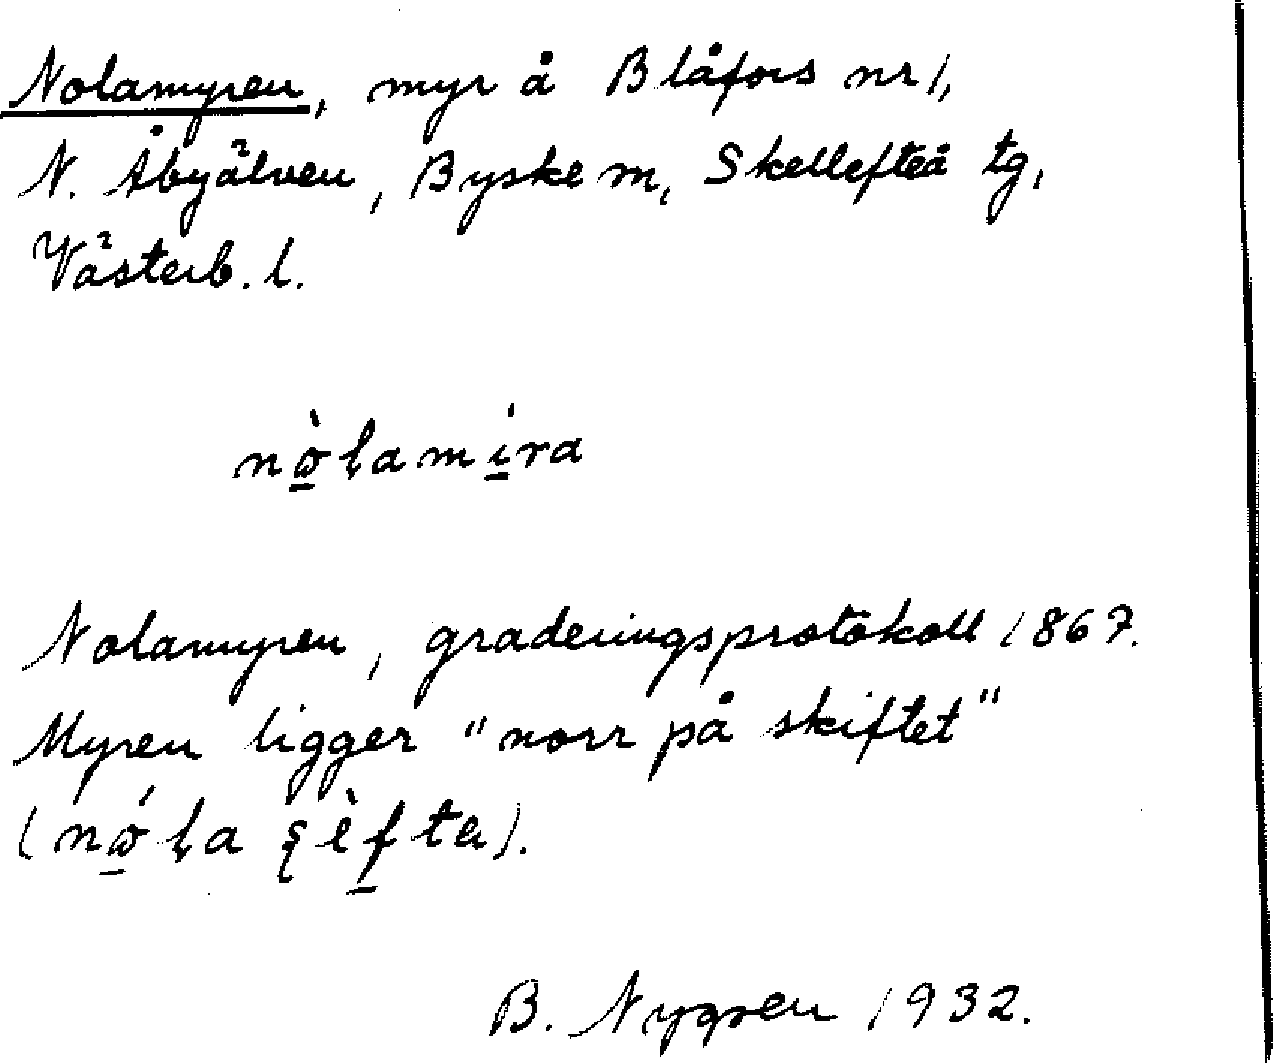 Nolamyren, myr å Blåfors nr 1,
N. Åbyälven, Byske m, Skellefteå tg,
Västerb. l.
nὼ̱ḷamí̱ra
Nolamyren, graderingsprotokoll 1867.
Myren ligger "norr på skiftet"
(nώ̱ḷa ʂìf̱ta).
B. Nygren 1932.